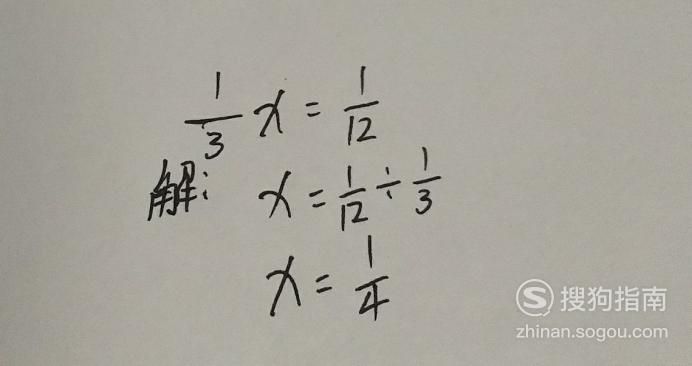 1/3 x = 1/12
解: x = 1/12 ÷ 1/3
x = 1/4
搜狗指南
zhinan.sogou.com